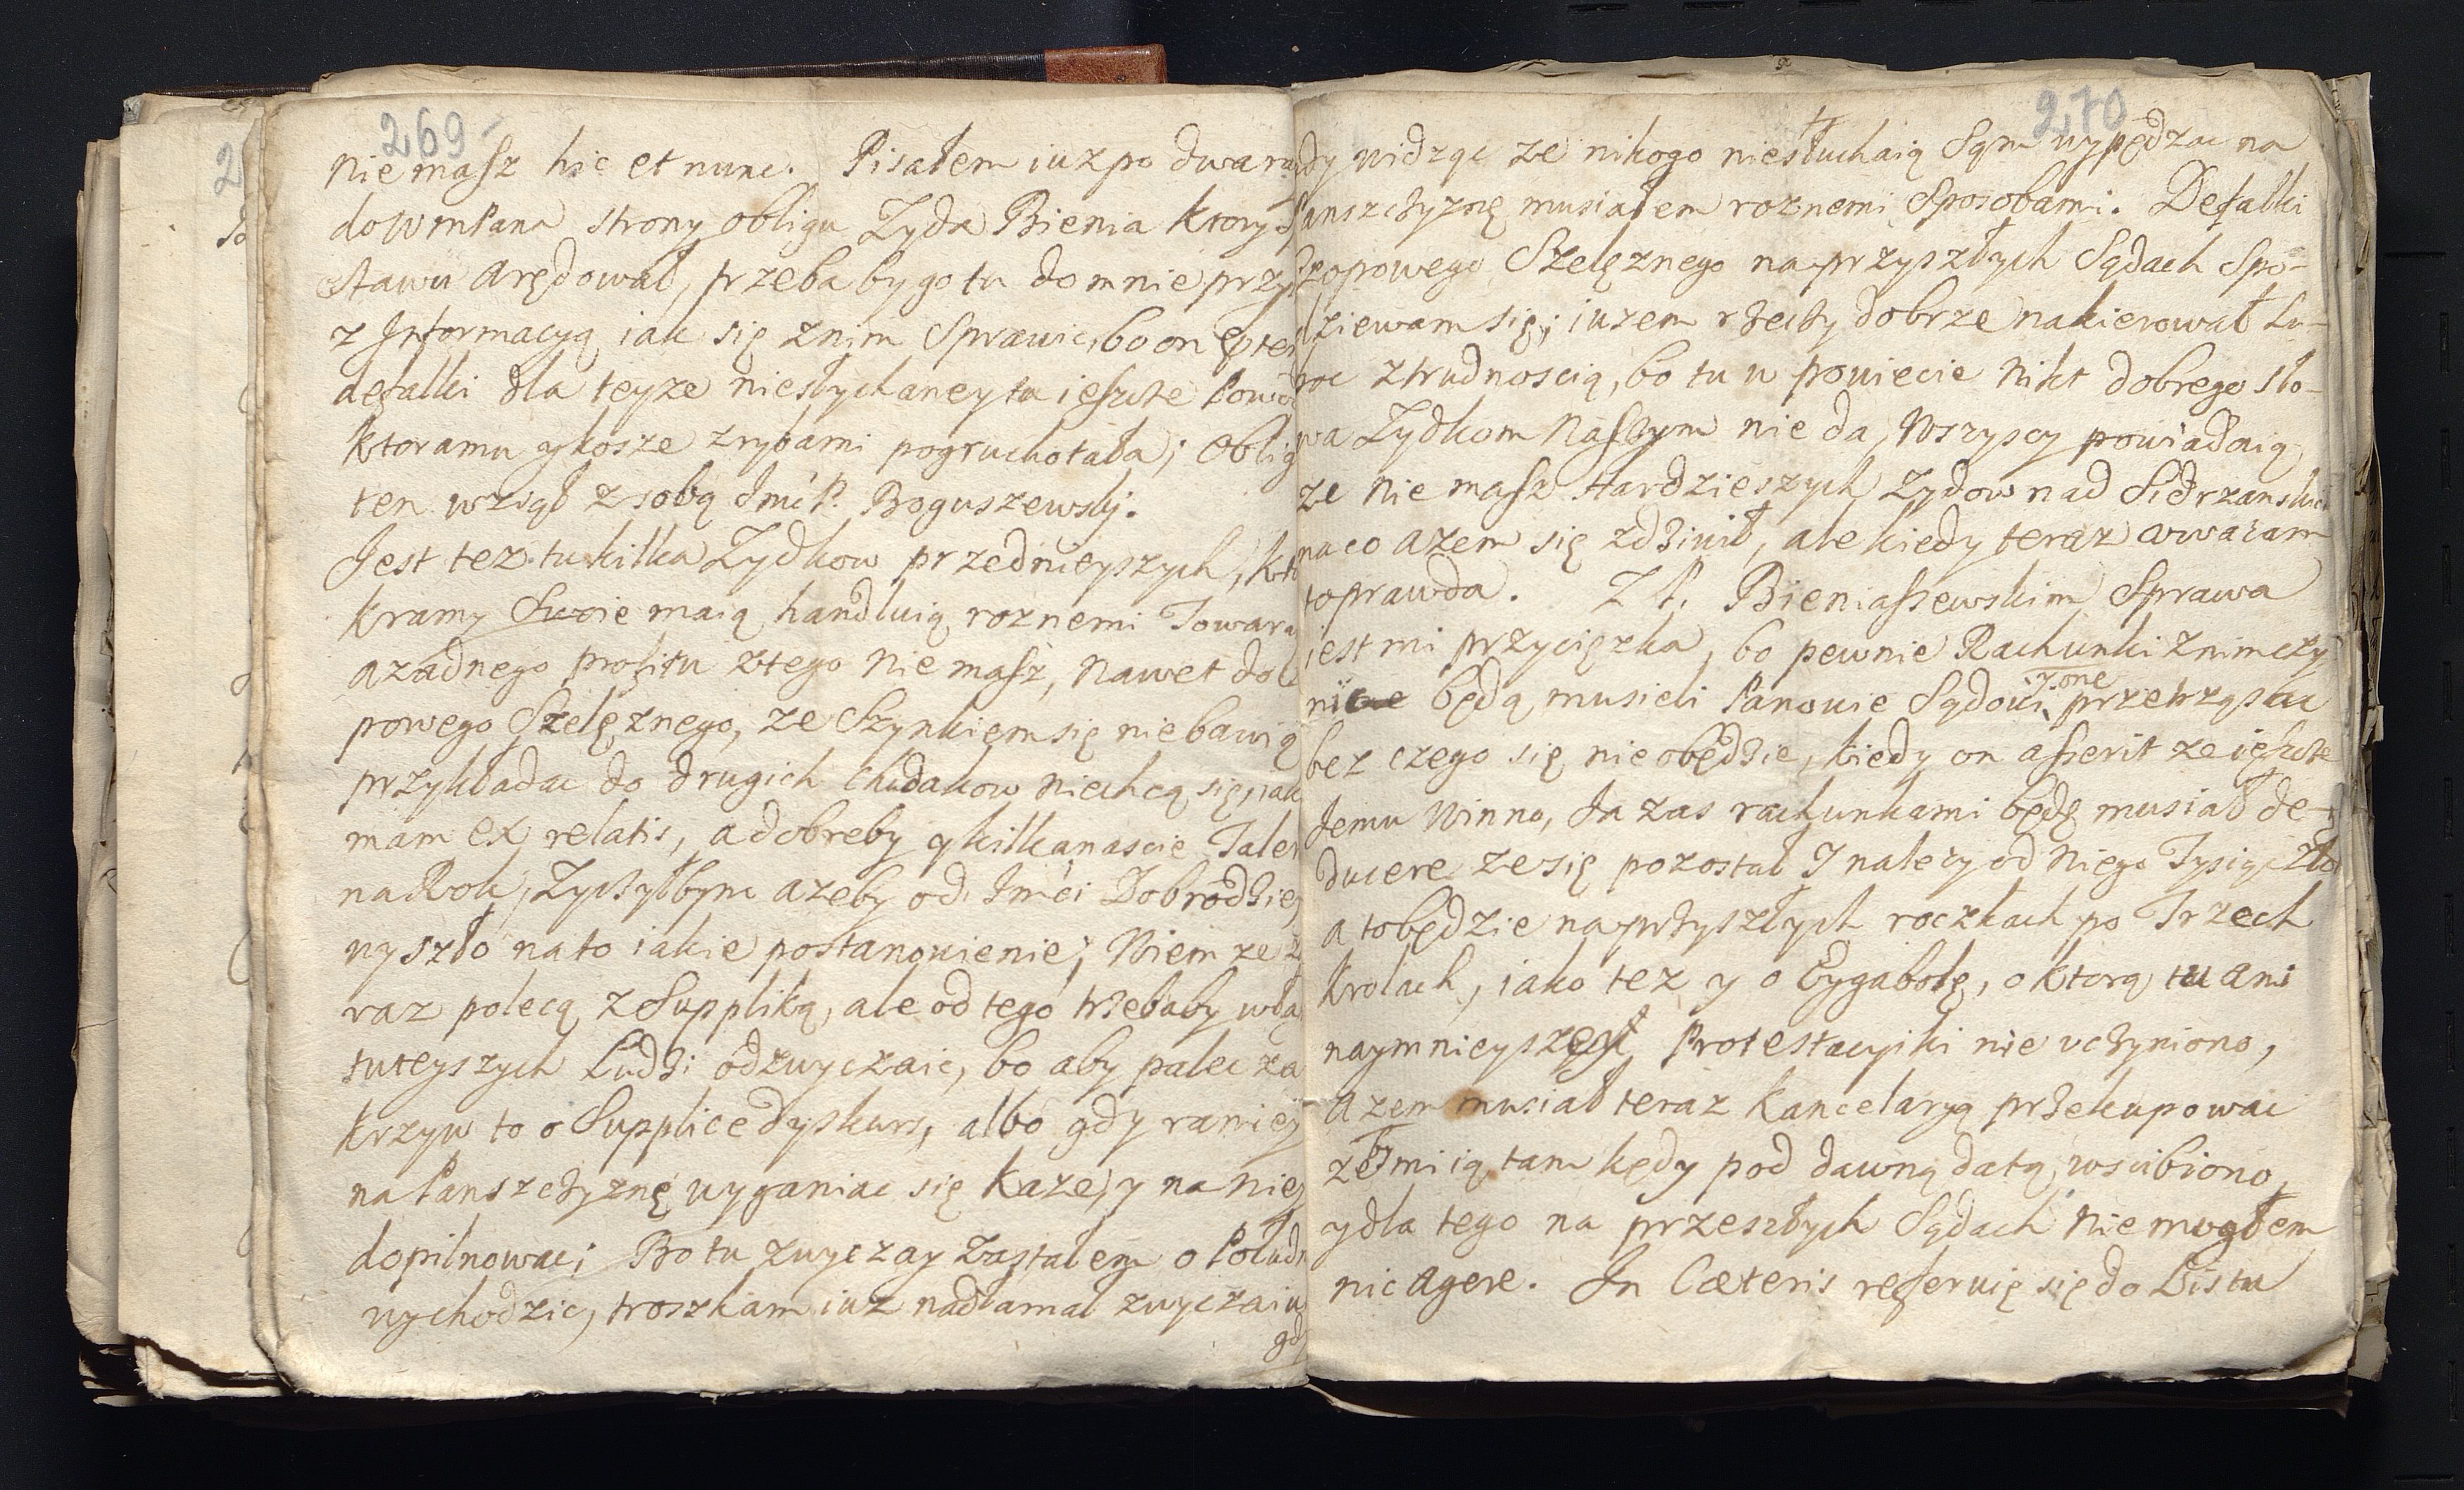 269
nie masz hic et nunc. Pisałem iuz po dwa ra
do WmPana strony obligu Zyda Bienia ktory
stawu arędował, przeba by go tu do mnie przy
z Informacyą iak się znim sprawic, bo on
defalki dla teyze niesłychaney tu ieszcze Powo
ktoramu y kosze zrybami pogruchotała; Oblig
ten wziął z sobą Jmć P. Boguszewski.
Jest tez tu kilka Zydkow przednieyszych, kto
kramy swoie maią handluią roznemi Towara
azadnego profitu ztego nie masz, nawet do
powego Szelęznego, ze Szynkiem się nie bawią
przykładac do drugich chudakow niechcą się, iak
mam ex relatis, a dobreby y kilkanascie Taler
na Rok, zyczyłbym azeby od Jmći Dobrodzie
wyszło nato iakie postanowienie; Wiem ze
raz polecą z Suppliką, ale od tego trzebaby
tuteyszych Ludzi odzwyczaic, bo aby palec za
krzyw to o Supplice dyskurs, albo gdy raniey
na Panszczyznę wyganiac się kaze, y na niey
dopilnowac; Bo tu zwyczay zastałem o Połud
wychodzic, troszkam iuz nadłamał zwyczaiu
gdy
270
dy widząc ze nikogo niesłuchaią Sam wypędzac na
Panszczyznę musiałem roznemi sposobami. Defalki
Szelęznego na przyszłych Sądach Spo-
dziewam się; iuzem rzeczy dobrze nakierował Lu-
boc ztrudnoscią, bo tu w powiecie nikt dobrego sło-
wa Zydkom naszym nie da, Wszyscy powiadaią
ze nie masz Hardzieszych Zydow nad Sidrzanskich
naco azem się zdziwił, ale kiedy teraz uwazam
to prawda. Z P. Bieniaszewskim Sprawa
iest mi przycięzka, bo pewnie Rachunki znim czy
nione będą musieli Panowie Sądowi przetrząsac
bez czego się nie obędzie, kiedy on asserit ze ieszcze
Jemu Winno, Ja zas rachunkami będę musiał de-
ducere ze się pozostał y nalezy od niego Tysiąc Zło
a to będzie na przyszłych roczkach po Trzech
Krolach, iako tez y o Cygabołę, o ktorą tu ani
naymnieyszey Protestacyiki nie uczyniono,
azem musiał teraz Kancelaryą przekupowac
ze mi ią tam kędy pod dawną datą wscibiono,
y dla tego na przeszłych Sądach nie mogłem
nic agere. In Cæteris referuię się do Listu